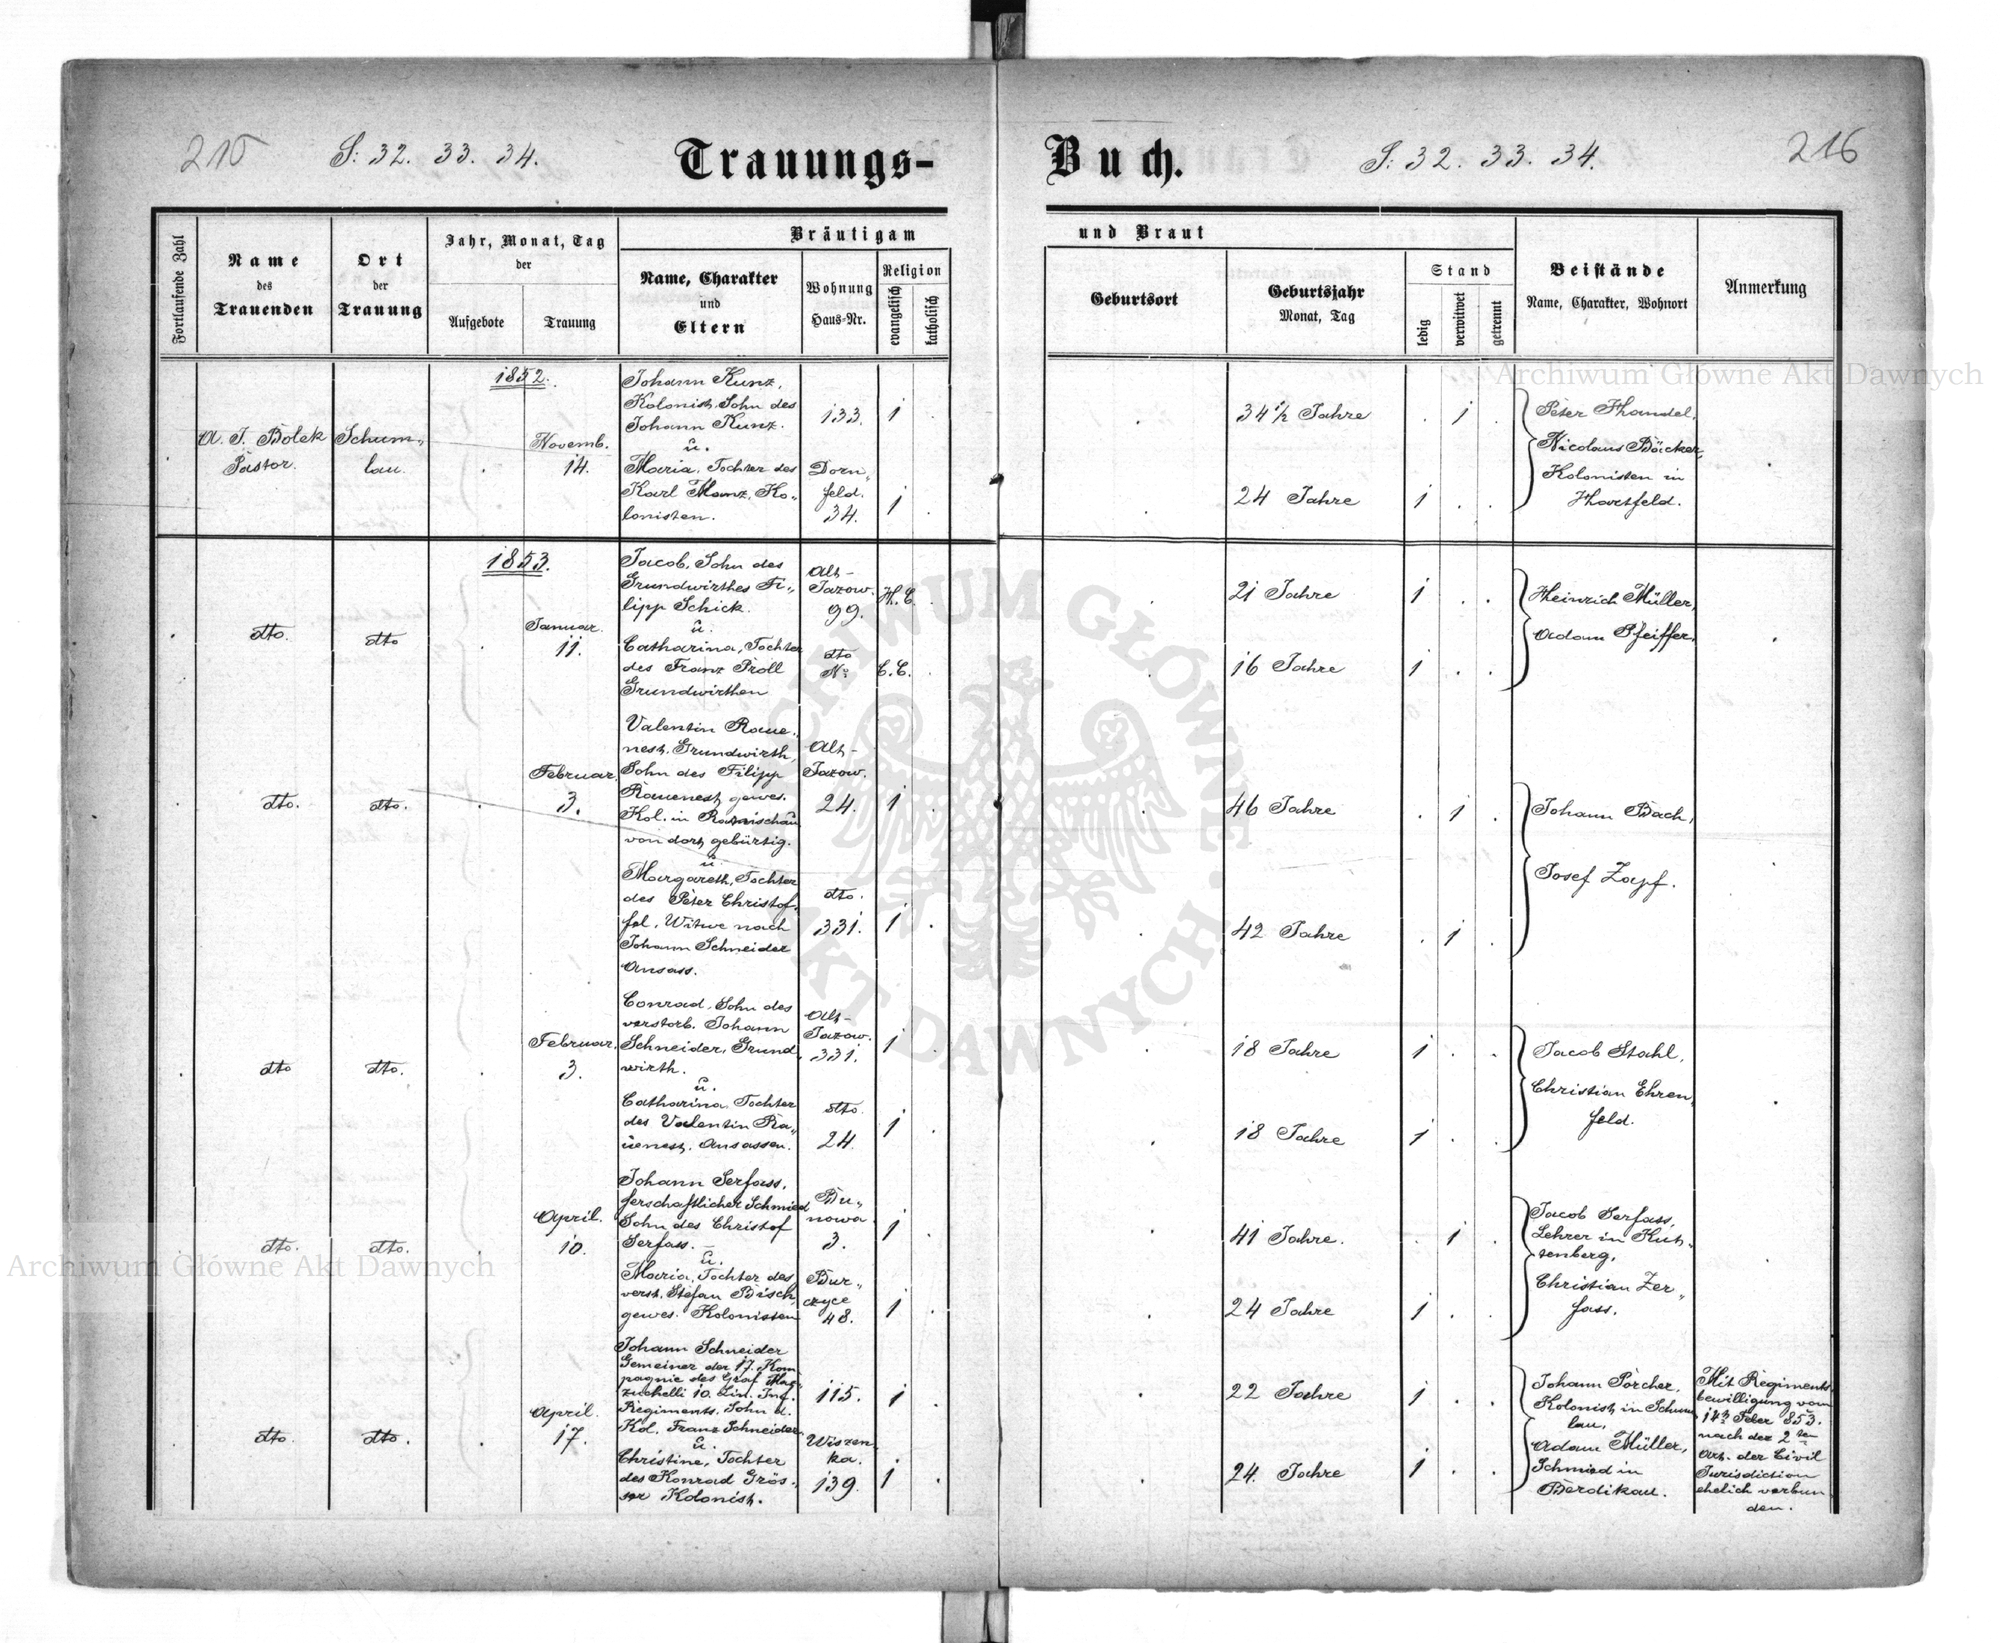 215
S: 32. 33. 34.
Trauungs-
Buch.
S: 32. 33. 34.
216
Fortlaufende Zahl
Name
des
Trauenden
Ort
der
Trauung
Jahr, Monat, Tag
der
Aufgebote
Trauung
Bräutigam
Name, Charakter
und
Eltern
Wohnung
Haus-Nr.
Religion
evangelisch
katholisch
und Braut
Geburtsort
Geburtsjahr
Monat, Tag
Stand
ledig
verwitwet
getrennt
Beistände
Name, Charakter, Wohnort
Anmerkung
1852.
A. J. Bolek
Pastor.
Schum„
lau.
Novemb.
14.
Johann Kunz,
Kolonist, Sohn des
Johann Kunz.
u.
Maria, Tochter des
Karl Manz, Ko„
lonisten.
133.
Dorn„
feld.
34.
1
1
34 1/2 Jahre
1
24 Jahre
1
Peter Handel,
Nicolaus Bäcker,
Kolonisten in
Hartfeld.
1853.
dto.
dto
Januar.
11.
Jacob, Sohn des
Grundwirthes Fi„
lipp Schick.
u.
Catharina, Tochter
des Franz Proll
Grundwirthen
Alt-
Jazow.
99.
dto
No
H. C.
C. C.
21 Jahre
1
16 Jahre
1
Heinrich Müller,
Adam Pfeiffer.
dto.
dto.
Februar.
3.
Valentin Raue„
nest, Grundwirth,
Sohn des Filipp
Rauenest, gewes.
Kol. in Ranischau
von dort gebürtig.
u.
Margareth, Tochter
des Peter Christof„
fel, Witwe nach
Johann Schneider
Ansass.
Alt-
Jazow.
24.
dto.
331.
1
1
46 Jahre
1
42 Jahre
1
Johann Bach,
Josef Zapf.
dto
dto.
Februar.
3.
Conrad, Sohn des
verstorb. Johann
Schneider, Grund„
wirth.
u.
Catharina, Tochter
des Valentin Ra„
uenest, Ansassen.
Alt-
Jazow.
331.
dto.
24.
1
1
18 Jahre
1
18 Jahre
1
Jacob Stahl,
Christian Ehren„
feld.
dto.
dto.
April.
10.
Johann Serfass,
herschaftlicher Schmied
Sohn des Christof
Serfass.
u.
Maria, Tochter des
verst. Stefan Bisch,
gewes. Kolonisten
Bu„
nowa
3.
Bur„
czyce
48.
1
1
41 Jahre.
1
24 Jahre
1
Jacob Serfass,
Lehrer in Kut„
tenberg,
Christian Zer„
fass.
dto.
dto.
April.
17.
Johann Schneider
Gemeiner der 17. Kom„
pagnie des Graf Maz„
zuchelli 10. Lin. Inf.
Regiments, Sohn d.
Kol. Franz Schneider.
u.
Christine, Tochter
des Konrad Grös„
ser Kolonist.
115.
Wiszen„
ka.
139.
1
1
22 Jahre
1
24. Jahre
1
Johann Porcher,
Kolonist in Schum„
lau,
Adam Müller,
Schmied in
Berdikau.
Mit Regiments„
bewilligung vom
14n Feber 853.
nach der 2ten
Art. der Civil
Jurisdiction
ehelich verbun„
den.
Archiwum Główne Akt Dawnych
Archiwum Główne Akt Dawnych
ARCHIWUM GŁÓWNE AKT DAWNYCH